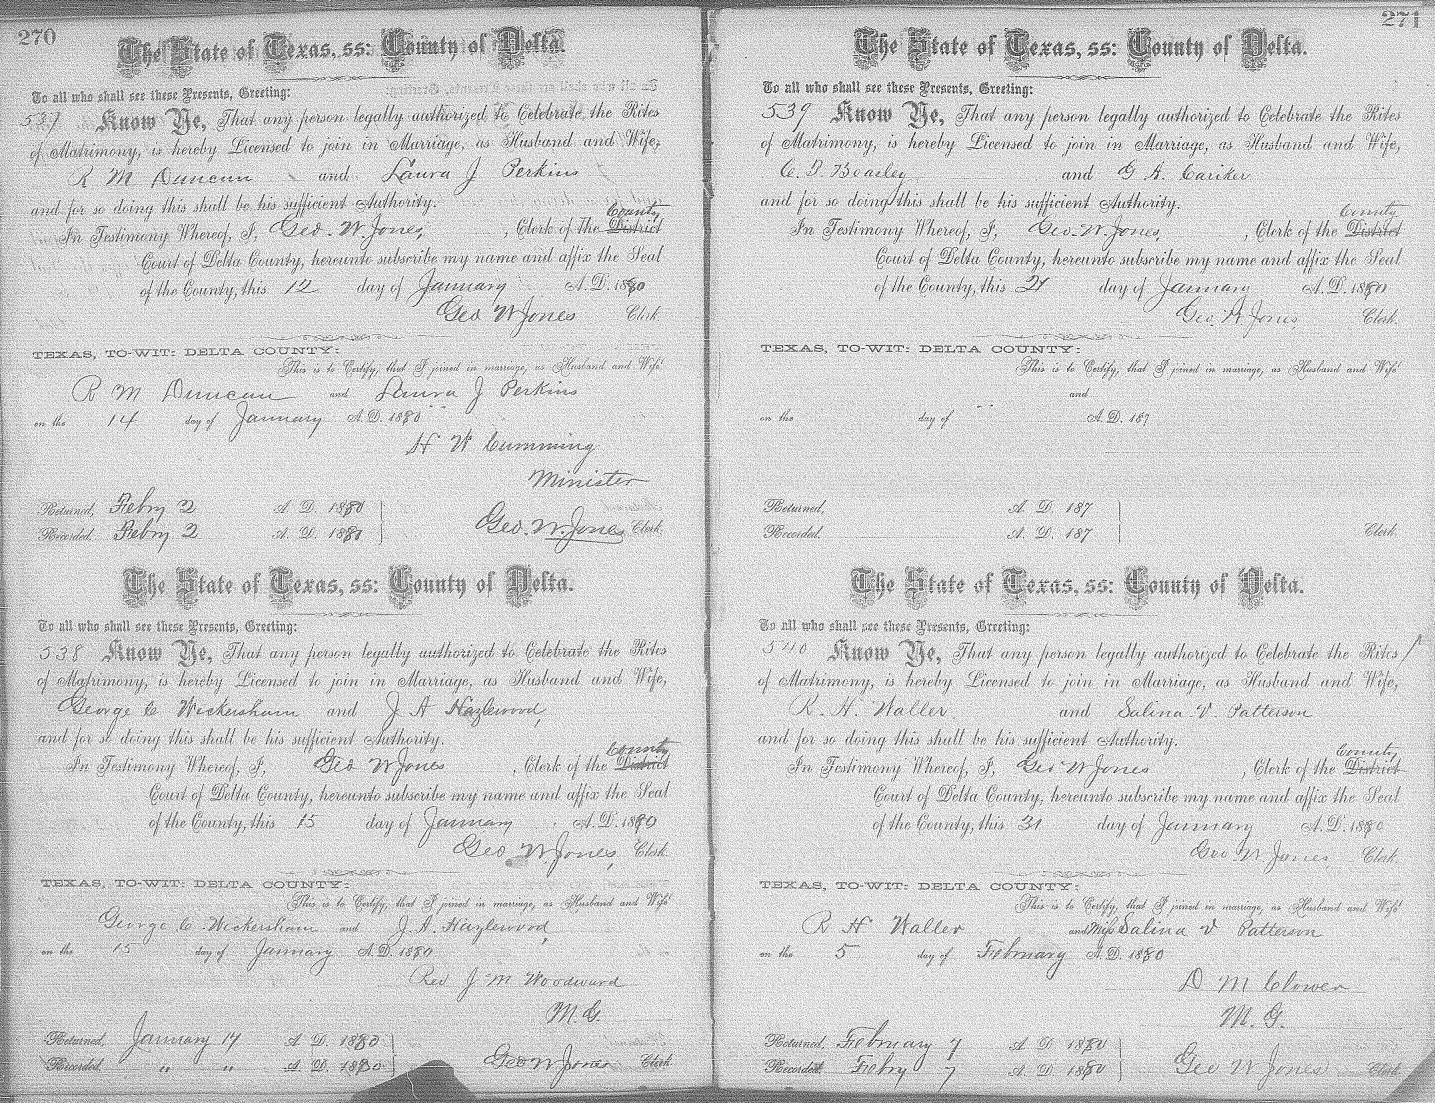 270
The State of Texas, ss: County of Delta.
To all who shall see these Presents, Greeting:
537 Know Ye, That any person legally authorized to Celebrate the Rites
of Matrimony, is hereby Licensed to join in Marriage, as Husband and Wife,
R M Duncan and Laura J Perkins
and for so doing this shall be his sufficient Authority.
County
In Testimony Whereof, I, Geo. W. Jones, , Clerk of the District
Court of Delta County, hereunto subscribe my name and affix the Seal
of the County, this 12 day of January A.D. 1880
Geo W Jones Clerk.
TEXAS, TO-WIT: DELTA COUNTY:
This is to Certify, that I joined in marriage, as Husband and Wife
R M Duncan and Laura J Perkins
on the 14 day of January A.D. 1880
H W Cumming
Minister
Returned, Febry 2 A. D. 1880
Recorded, Febry 2 A. D. 1880
Geo. W. Jones Clerk.
The State of Texas, ss: County of Delta.
To all who shall see these Presents, Greeting:
538 Know Ye, That any person legally authorized to Celebrate the Rites
of Matrimony, is hereby Licensed to join in Marriage, as Husband and Wife,
George C Wickersham and J A Hazlewood,
and for so doing this shall be his sufficient Authority.
County
In Testimony Whereof, I, Geo W Jones , Clerk of the District
Court of Delta County, hereunto subscribe my name and affix the Seal
of the County, this 15 day of January A.D. 1880
Geo W. Jones, Clerk.
TEXAS, TO-WIT: DELTA COUNTY:
This is to Certify, that I joined in marriage, as Husband and Wife
George C. Wickersham and J. A. Hazlewood,
on the 15 day of January A.D. 1880
Rev J M Woodward
M. G.
Returned, January 17 A. D. 1880
Recorded, " " A. D. 1880
Geo W Jones Clerk
271
The State of Texas, ss: County of Delta.
To all who shall see these Presents, Greeting:
539 Know Ye, That any person legally authorized to Celebrate the Rites
of Matrimony, is hereby Licensed to join in Marriage, as Husband and Wife,
and G A Cariker
and for so doing this shall be his sufficient Authority.
County
In Testimony Whereof, I, Geo. W. Jones, , Clerk of the District
Court of Delta County, hereunto subscribe my name and affix the Seal
of the County, this 21 day of January A.D. 1880
Geo. W. Jones, Clerk.
TEXAS, TO-WIT: DELTA COUNTY:
This is to Certify, that I joined in marriage, as Husband and Wife
and
on the day of A.D. 187
Returned, A. D. 187
Recorded, A. D. 187
Clerk.
The State of Texas, ss: County of Delta.
To all who shall see these Presents, Greeting:
540 Know Ye, That any person legally authorized to Celebrate the Rites
of Matrimony, is hereby Licensed to join in Marriage, as Husband and Wife,
R. H. Waller and Salina V. Patterson
and for so doing this shall be his sufficient Authority.
County
In Testimony Whereof, I, Geo W Jones , Clerk of the District
Court of Delta County, hereunto subscribe my name and affix the Seal
of the County, this 31 day of January A.D. 1880
Geo W Jones Clerk.
TEXAS, TO-WIT: DELTA COUNTY:
This is to Certify, that I joined in marriage, as Husband and Wife
R H Waller and Miss Salina V Patterson
on the 5 day of February A.D. 1880
D M Clower
M. G.
Returned, February 7 A. D. 1880
Recorded, Febry 7 A. D. 1880
Geo W Jones Clerk